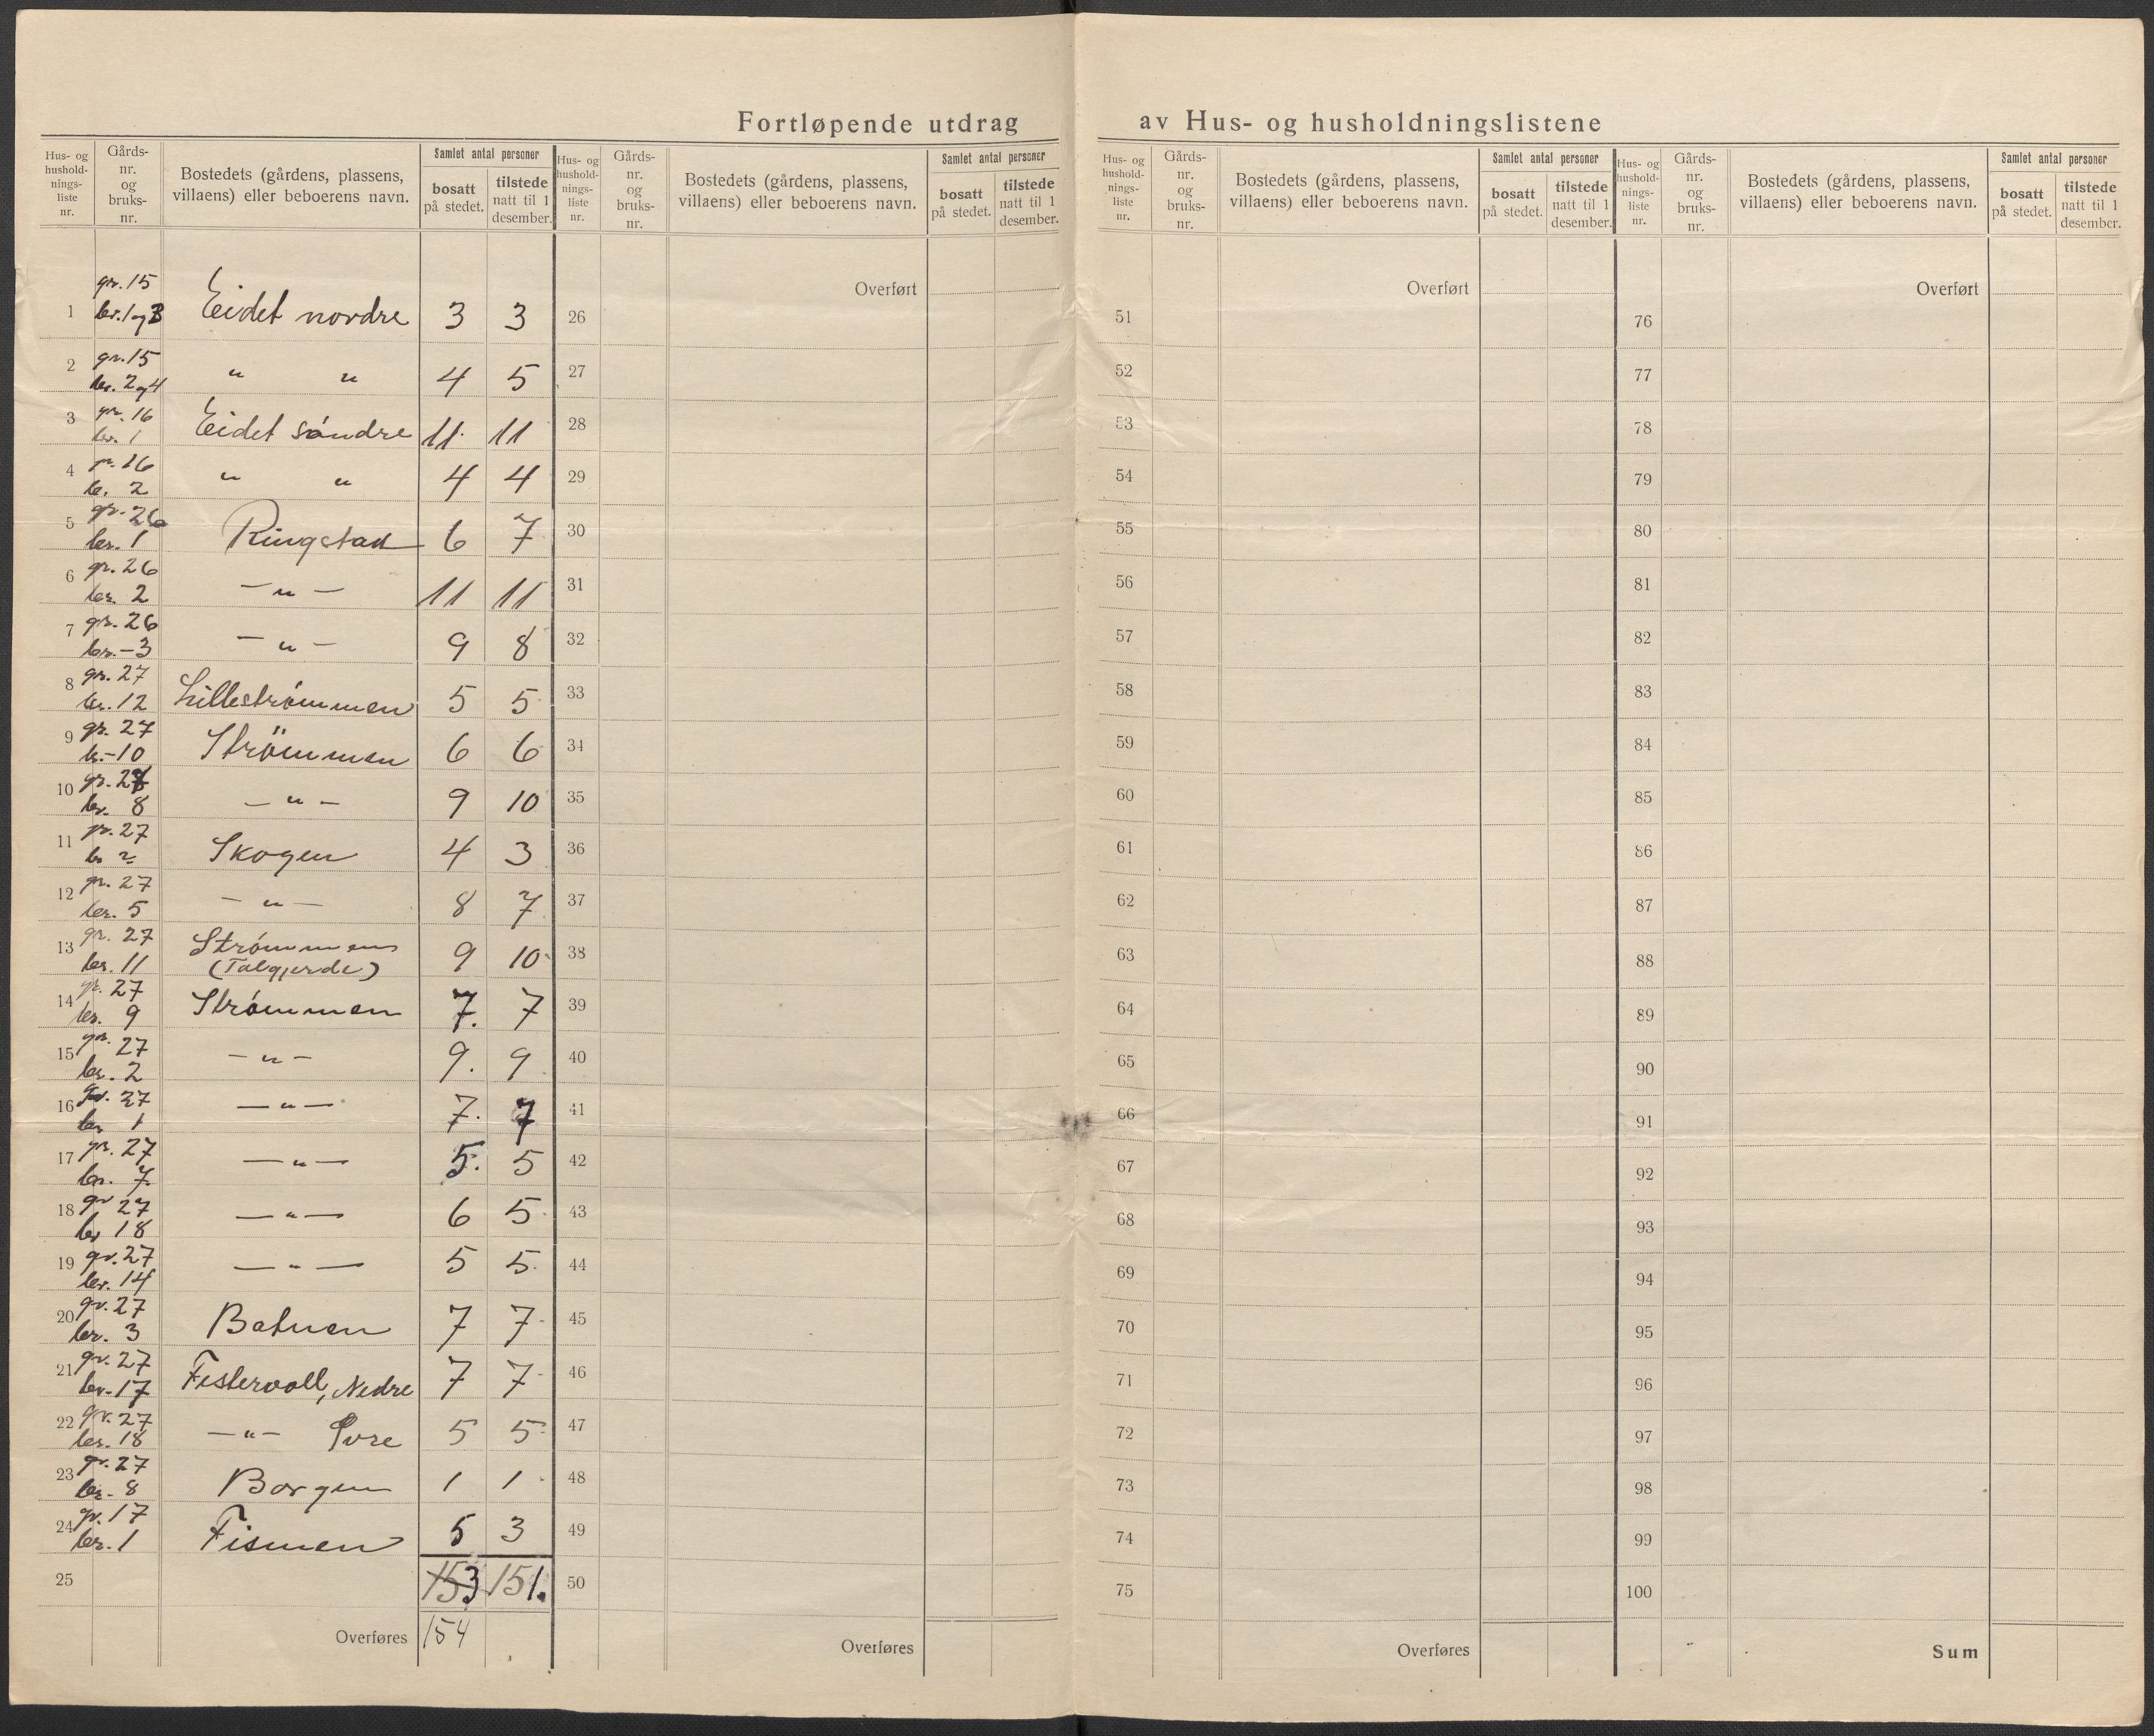 Fortløpende utdrag av Hus- og husholdningslistene
Hus- og hushold-nings-liste nr. Gårds-nr. og bruks-nr. Bostedets (gårdens, plassens, villaens) eller beboerens navn. Samlet antal personer bosatt på stedet. tilstede natt til 1 desember.
Hus- og hushold-nings-liste nr. Gårds-nr. og bruks-nr. Bostedets (gårdens, plassens, villaens) eller beboerens navn. Samlet antal personer bosatt på stedet. tilstede natt til 1 desember.
Hus- og hushold-nings-liste nr. Gårds-nr. og bruks-nr. Bostedets (gårdens, plassens, villaens) eller beboerens navn. Samlet antal personer bosatt på stedet. tilstede natt til 1 desember.
Hus- og hushold-nings-liste nr. Gårds-nr. og bruks-nr. Bostedets (gårdens, plassens, villaens) eller beboerens navn. Samlet antal personer bosatt på stedet. tilstede natt til 1 desember.
Overført Overført Overført
1 gr. 15 br. 1 og 3 Eidet nordre 3 3 26 51 76
2 gr. 15 br. 2 og 4 " " 4 5 27 52 77
3 gr. 16 br. 1 Eidet søndre 11. 11 28 53 78
4 gr. 16 br. 2 " " 4 4 29 54 79
5 gr. 26 br. 1 Ringstad 6 7 30 55 80
6 gr. 26 br. 2 — " — 11 11 31 56 81
7 gr. 26 br. – 3 — " — 9 8 32 57 82
8 gr. 27 br. 12 Lillestrømmen 5 5 33 58 83
9 gr. 27 br. – 10 Strömmen 6 6 34 59 84
10 gr. 27 br. 8 — " — 9 10 35 60 85
11 gr. 27 br. Skogen 4 3 36 61 86
12 gr. 27 br. 5 — " — 8 7 37 62 87
13 gr. 27 br. 11 Strømmen (Talgjerde) 9 10 38 63 88
14 gr. 27 br. 9 Strømmen 7. 7 39 64 89
15 gr. 27 br. 2 — " — 9. 9 40 65 90
16 gr. 27 br. 1 — " — 7. 7 41 66 91
17 gr. 27 br. 7 — " — 5. 5 42 67 92
18 gr. 27 br. 18 — " — 6 5 43 68 93
19 gr. 27 br. 14 — " — 5 5 44 69 94
20 gr. 27 br. 3 Botnen 7 7 45 70 95
21 gr. 27 br. 17 Festervoll, Nedre 7 7 46 71 96
22 gr. 27 br. 18 — " — Øvre 5 5 47 72 97
23 gr. 27 br. 8 Borgen 1 1 48 73 98
24 gr. 17 br. 1 Fismen 5 3 49 74 99
25 153 151. 50 75 100
Overføres 154 Overføres Overføres Sum